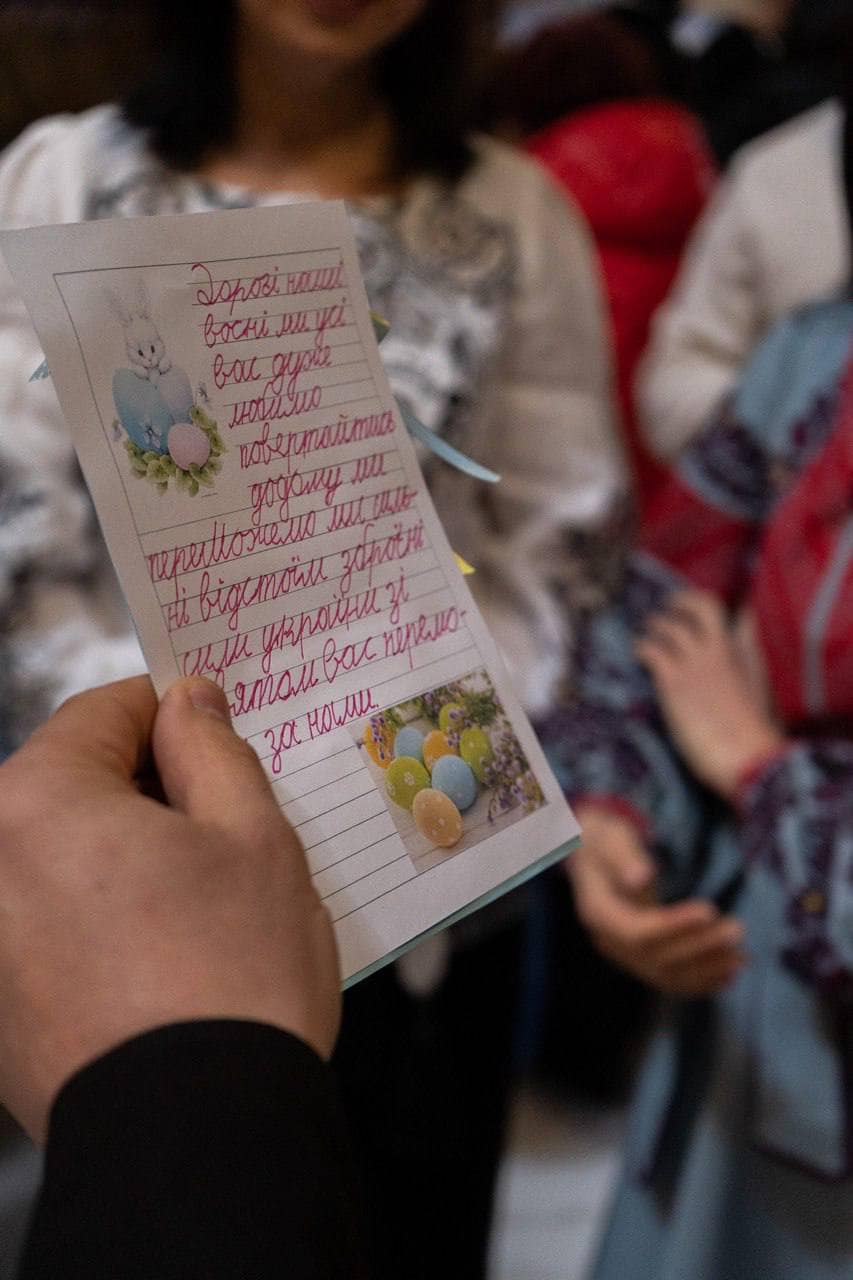 Дорогі наші
воєні ми усі
вас дуже
любимо
повертайтись
додому ми
переможемо ми силь-
ні відстоїм збройні
сили україни зі
ятом вас перемо-
за нами.